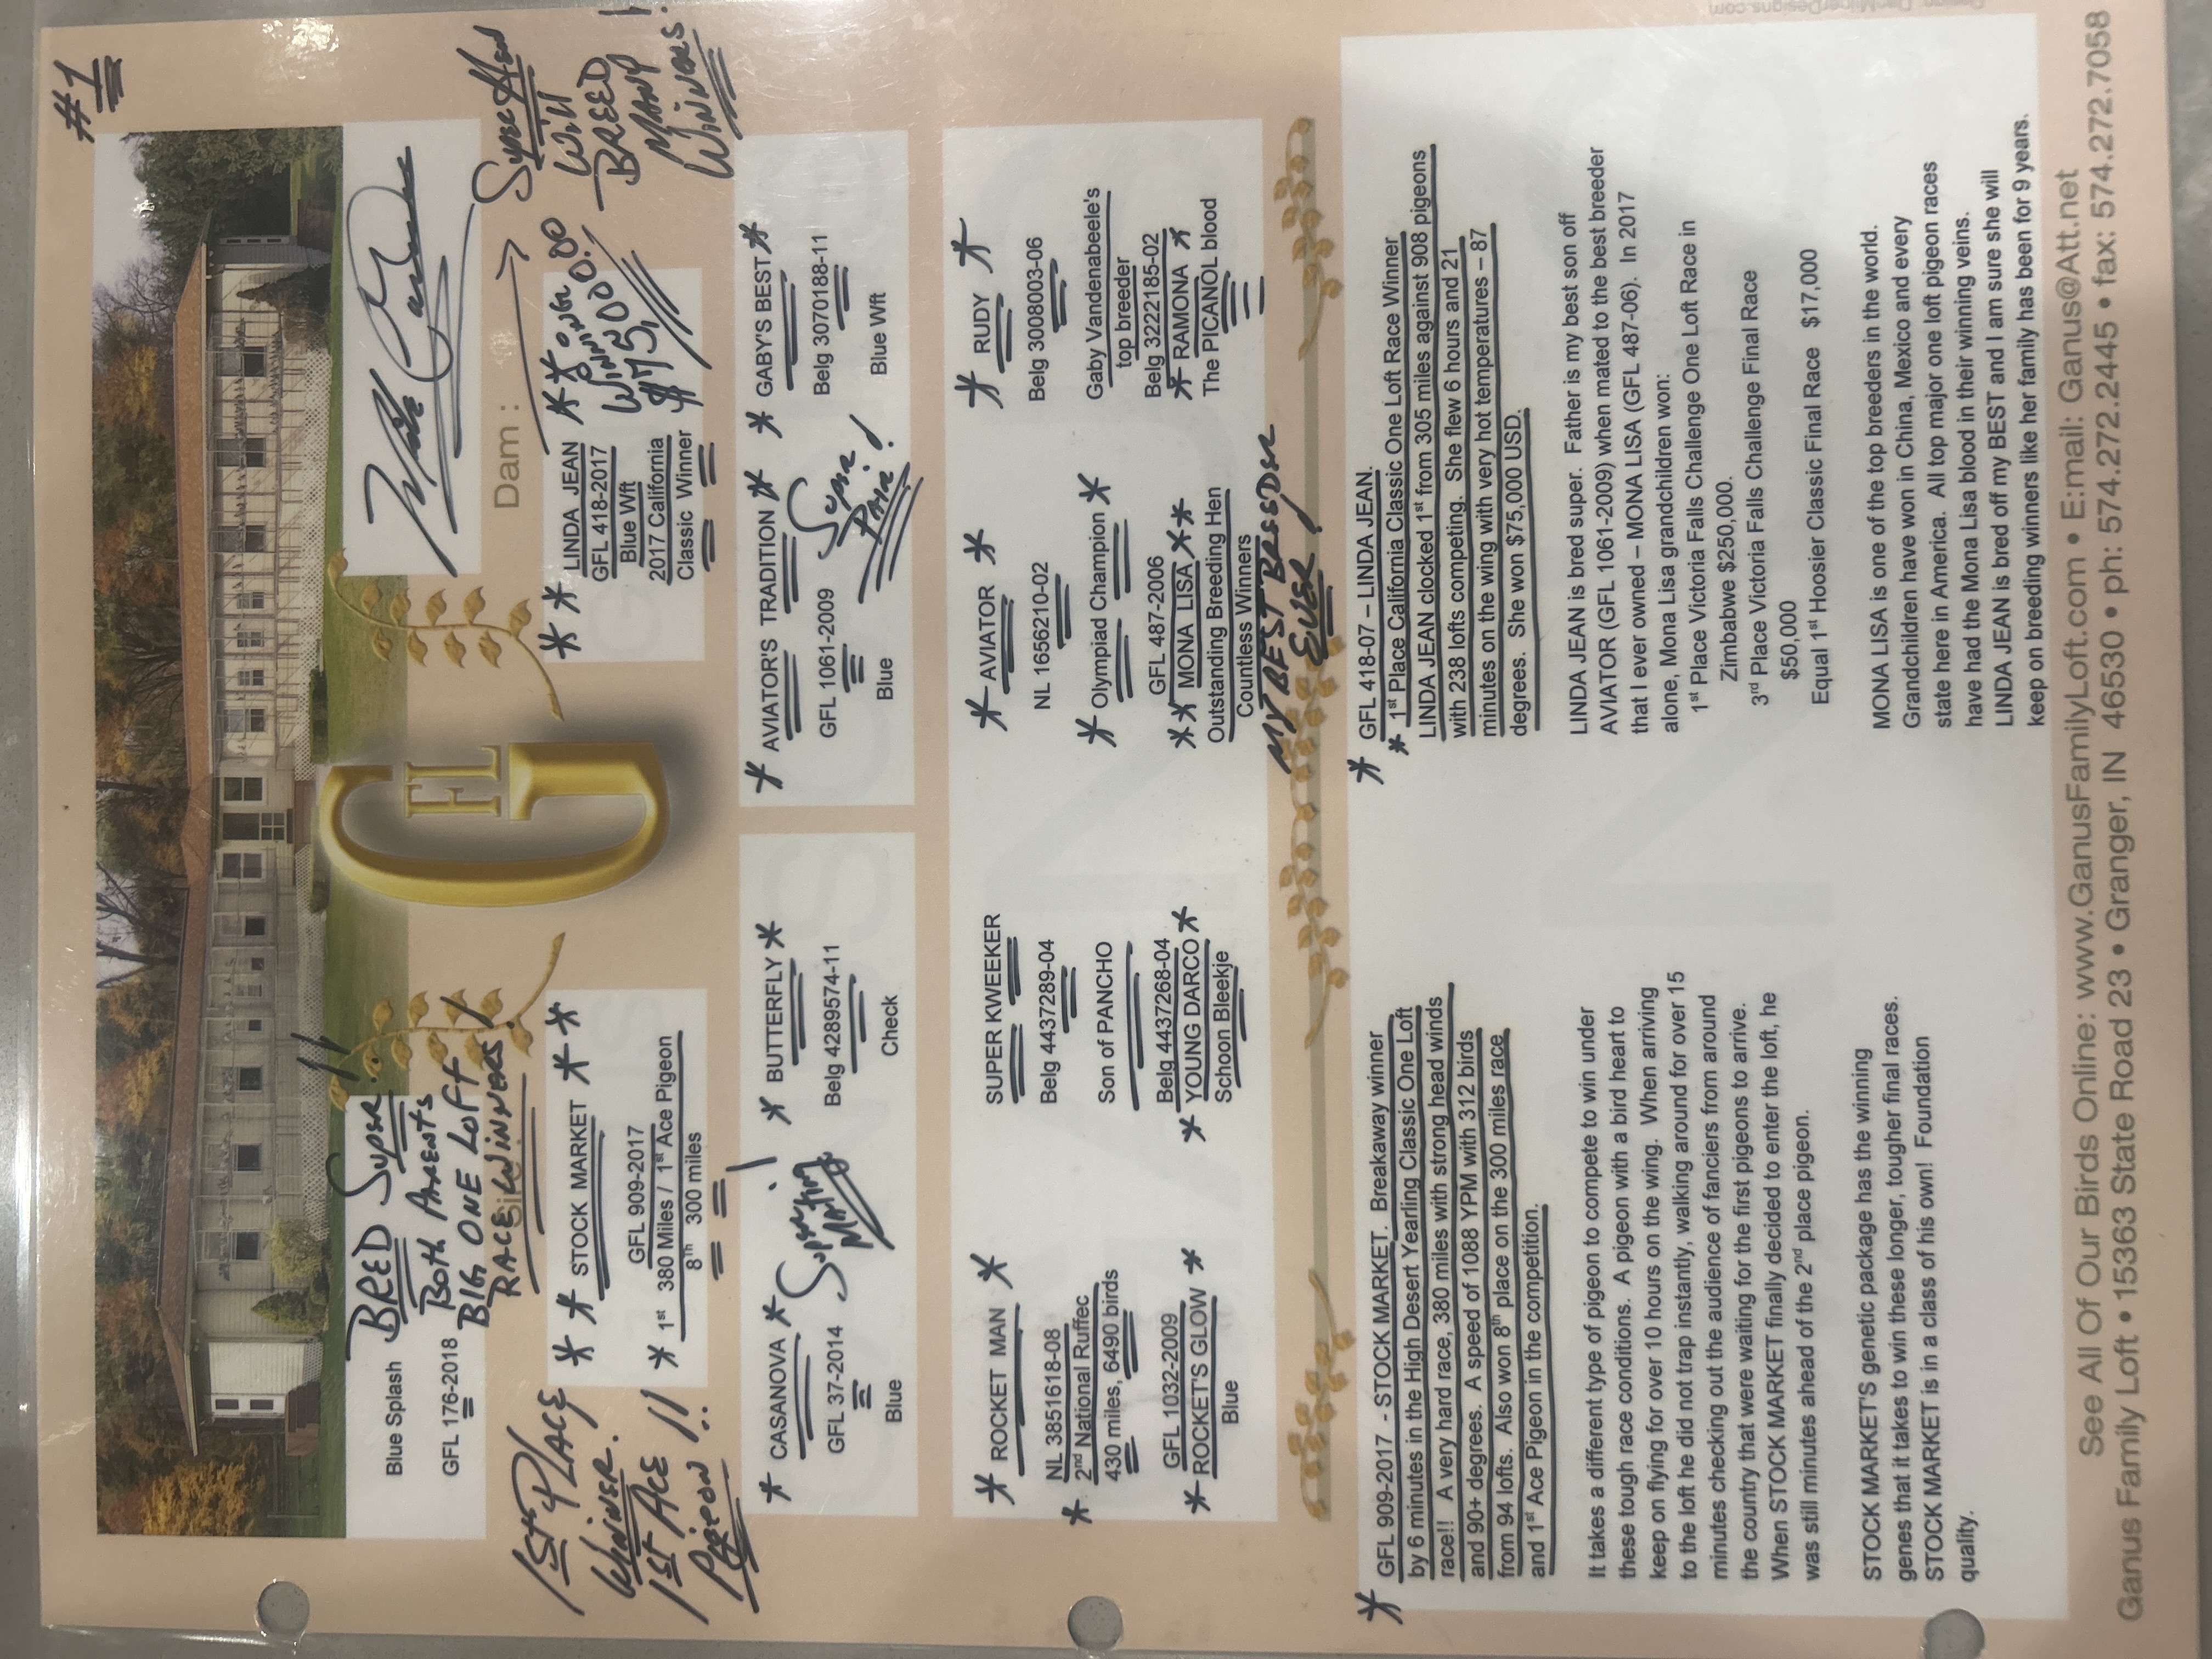 #1
Blue Splash
GFL 176-2018
BRED Super!!
Both Parents
BIG ONE Loft
RACE Winners!
Dam:
Super Hen
Will
BREED
MANY
Winners!
1st PLACE
Winner.
1st ACE
Pigeon!!
* * STOCK MARKET * *
GFL 909-2017
* 1st 380 Miles / 1st Ace Pigeon
8Th 300 miles
GFL
* * LINDA JEAN * *
GFL 418-2017
Blue Wft
2017 California
Classic Winner
Winning
$75,000.00
* CASANOVA *
GFL 37-2014
Blue
Super
Mating!
* BUTTERFLY *
Belg 4289574-11
Check
* AVIATOR'S TRADITION *
GFL 1061-2009
Blue
Super
Pair!
* GABY'S BEST *
Belg 3070188-11
Blue Wft
* ROCKET MAN *
NL 3851618-08
* 2nd National Ruffec
430 miles, 6490 birds
GFL 1032-2009
* ROCKET'S GLOW *
Blue
SUPER KWEEKER
Belg 4437289-04
Son of PANCHO
Belg 4437268-04
* YOUNG DARCO *
Schoon Bleekje
* AVIATOR *
NL 1656210-02
* Olympiad Champion *
GFL 487-2006
* * MONA LISA * *
Outstanding Breeding Hen
Countless Winners
MY BEST BREEDER
EVER!
* RUDY *
Belg 3008003-06
Gaby Vandenabeele's
top breeder
Belg 3222185-02
* RAMONA *
The PICANOL blood
* GFL 909-2017 - STOCK MARKET. Breakaway winner
by 6 minutes in the High Desert Yearling Classic One Loft
race!! A very hard race, 380 miles with strong head winds
and 90+ degrees. A speed of 1088 YPM with 312 birds
from 94 lofts. Also won 8th place on the 300 miles race
and 1st Ace Pigeon in the competition.
It takes a different type of pigeon to compete to win under
these tough race conditions. A pigeon with a bird heart to
keep on flying for over 10 hours on the wing. When arriving
to the loft he did not trap instantly, walking around for over 15
minutes checking out the audience of fanciers from around
the country that were waiting for the first pigeons to arrive.
When STOCK MARKET finally decided to enter the loft, he
was still minutes ahead of the 2nd place pigeon.
STOCK MARKET'S genetic package has the winning
genes that it takes to win these longer, tougher final races.
STOCK MARKET is in a class of his own! Foundation
quality.
* GFL 418-07 – LINDA JEAN.
* 1st Place California Classic One Loft Race Winner
LINDA JEAN clocked 1st from 305 miles against 908 pigeons
with 238 lofts competing. She flew 6 hours and 21
minutes on the wing with very hot temperatures – 87
degrees. She won $75,000 USD.
LINDA JEAN is bred super. Father is my best son off
AVIATOR (GFL 1061-2009) when mated to the best breeder
that I ever owned – MONA LISA (GFL 487-06). In 2017
alone, Mona Lisa grandchildren won:
1st Place Victoria Falls Challenge One Loft Race in
Zimbabwe $250,000.
3rd Place Victoria Falls Challenge Final Race
$50,000
Equal 1st Hoosier Classic Final Race $17,000
MONA LISA is one of the top breeders in the world.
Grandchildren have won in China, Mexico and every
state here in America. All top major one loft pigeon races
have had the Mona Lisa blood in their winning veins.
LINDA JEAN is bred off my BEST and I am sure she will
keep on breeding winners like her family has been for 9 years.
See All Of Our Birds Online: www.GanusFamilyLoft.com • E:mail: Ganus@Att.net
Ganus Family Loft • 15363 State Road 23 • Granger, IN 46530 • ph: 574.272.2445 • fax: 574.272.7058